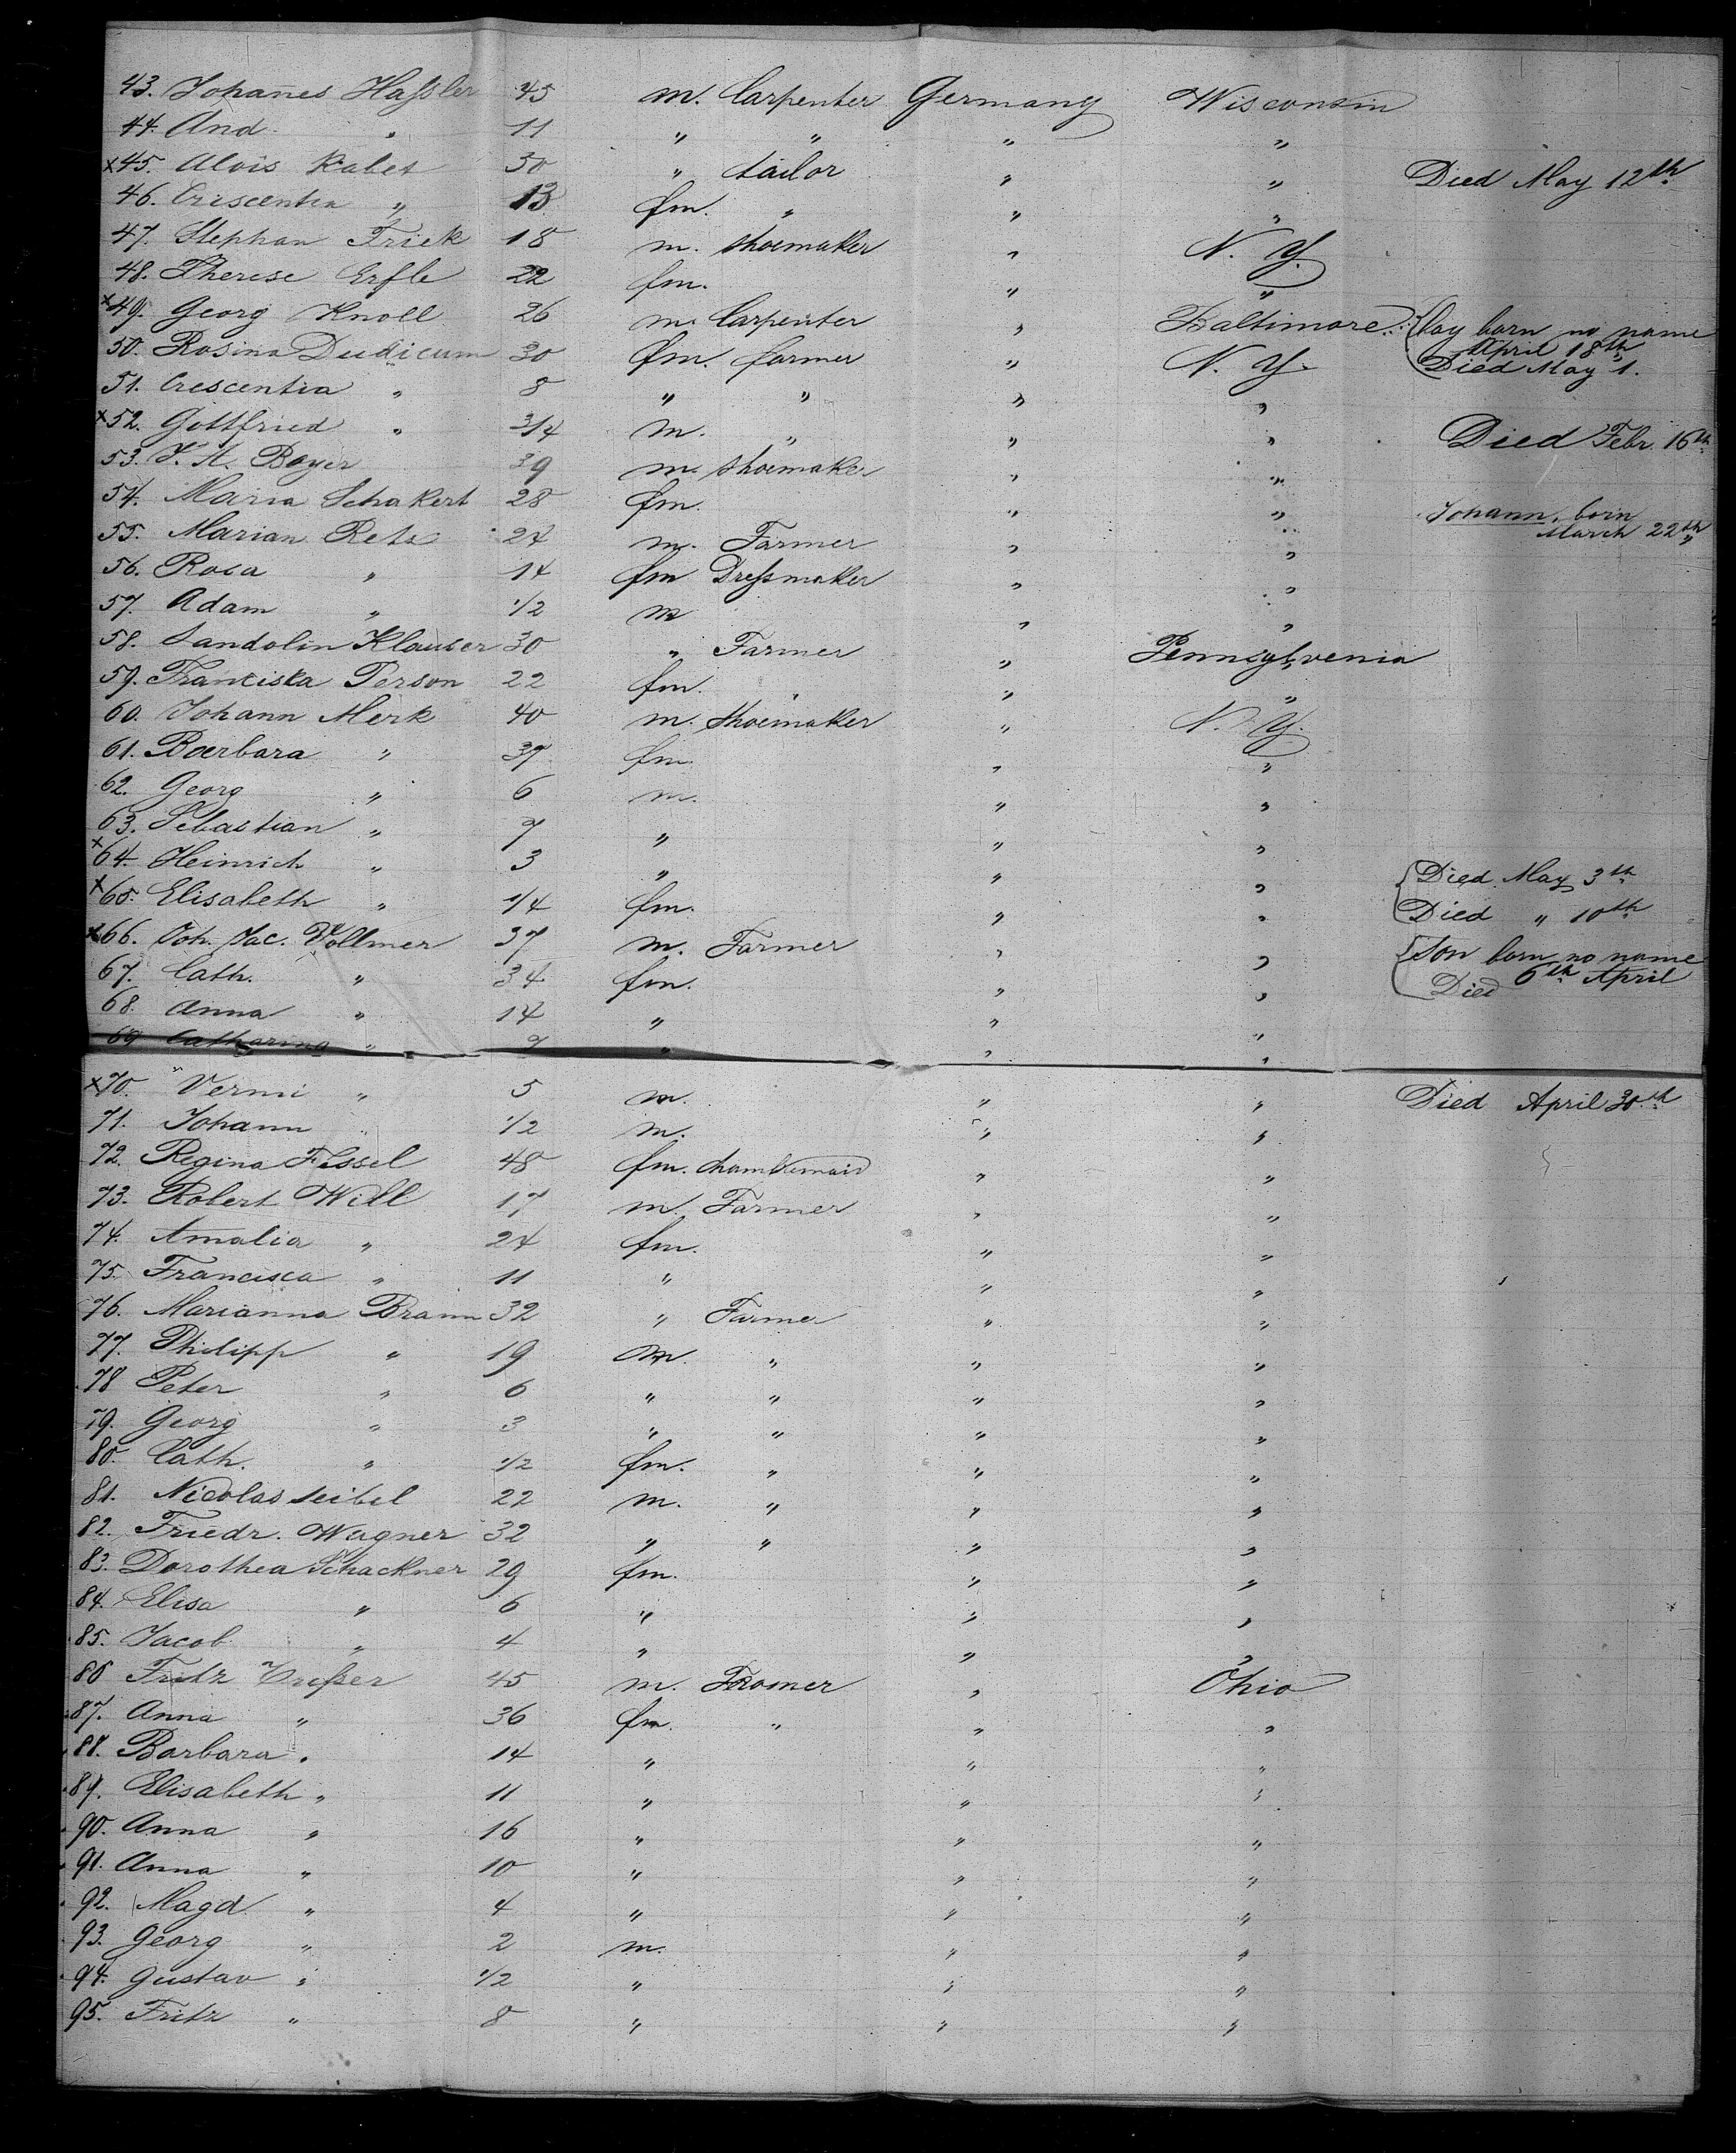 43. Johañes Haſsler 45 m. Carpenter Germany Wisconsin
44. And. " 11 " " " "
x45. Alois Rabet 30 " tailor " " Died May 12th
46. Criscentia " 13 fm. " " "
47. Stephan Frick 18 m. shoemaker " N. Y.
48. Therese Erfle 22 fm. " "
x49. Georg Knoll 26 m. Carpenter " Baltimore. { boy born no name
50. Rosina Dudicum 30 fm. farmer " N. Y. April 18th Died May 1.
51. Crescentia " 8 " " " "
x52. Gottfried " 3/4 m. " " " Died Febr. 16th
53. Boyer 39 m. shoemaker " "
54. Maria Schakert 28 fm. " " Johann, born
55. Marian Rets 24 m. Farmer " " March 22th
56. Rosa " 14 fm Dreſsmaker " "
57. Adam " 1/2 m " "
58. Sandolin Klauser 30 " Farmer " Pennsylvenia
59. Franziska Person 22 fm. " " "
60. Johann Merk 40 m. shoemaker " N. Y.
61. Barbara " 37 fm. " "
62. Georg " 6 m. " "
63. Sebastian " 7 " " "
x64. Heinrich " 3 " " " { Died May 3th
x65. Elisabeth " 1/4 fm. " " Died " 10th
x66. Joh. Jac. Vollmer 37 m. Farmer " " { Son born no name
67. Cath. " 34 fm. " " Died 6th April
68. Anna " 14 " " "
69 Catharina " 9 " " "
x70. Vermi " 5 m. " " Died April 30.th
71. Johann " 1/2 m. " "
72. Regina Fissel 48 fm. chambemaid " "
73. Robert Will 17 m. Farmer " "
74. Amalia " 24 fm. " "
75. Francisca " 11 " " "
76. Marianna Braun 32 " Farmer " "
77. Philipp " 19 m. " " "
78 Peter " 6 " " " "
79. Georg " 3 " " " "
80. Cath. " 1/2 fm. " " "
81. Nicolas Seibel 22 m. " " "
82. Friedr. Wagner 32 " " " "
83. Dorothea Schackner 29 fm. " "
84. Elisa " 6 " " "
85. Jacob " 4 " " "
86 Fritz 45 m. Framer " Ohio
87. Anna " 36 fm. " " "
88. Barbara " 14 " " "
89. Elisabeth " 11 " " "
90. Anna " 16 " " "
91. Anna " 10 " " "
92. Magd. " 4 " " "
93. Georg " 2 m. " "
94. Gustav " 1/2 " " "
95. Fritz " 8 " " "